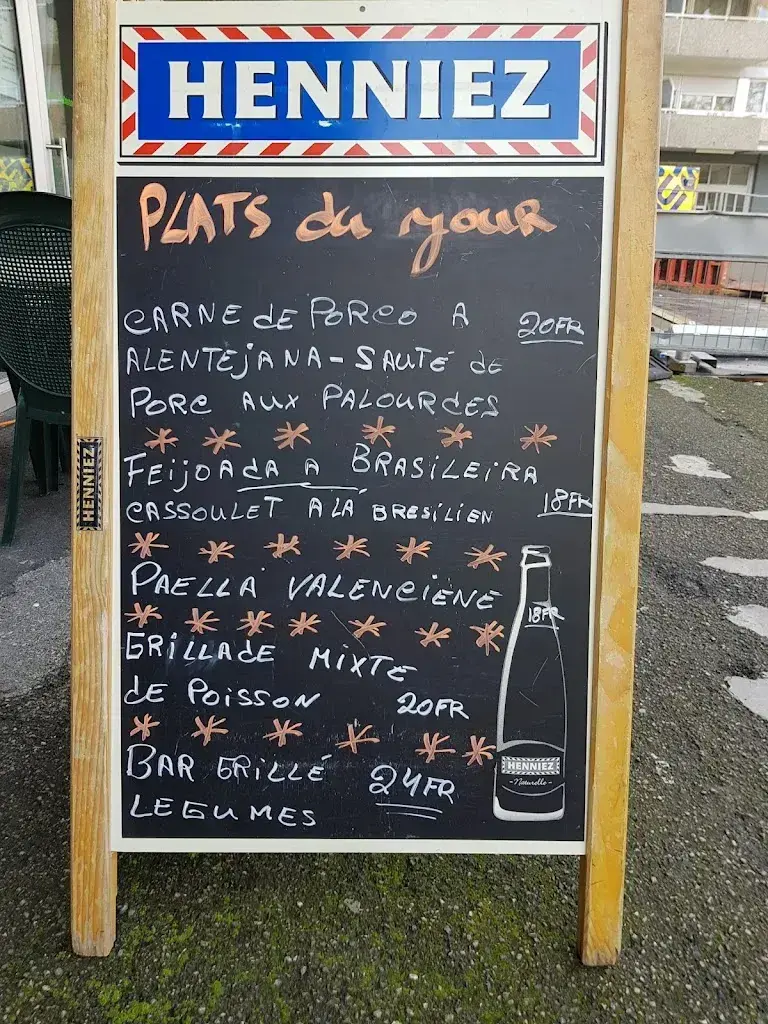 HENNIEZ
PLATS du your
CARNE de PORCO A 20FR
ALENTEJANA - SAUTÉ de
PORC AUX PALOURDES
FEIJOADA A BRASILEIRA
CASSOULET A LÁ BRESILIEN 18FR
PAELLA VALENCIENE
18FR
GRILLADE MIXTE
de POISSON 20FR
BAR GRILLÉ 24FR
LEGUMES
HENNIEZ
Naturelle
HENNIEZ